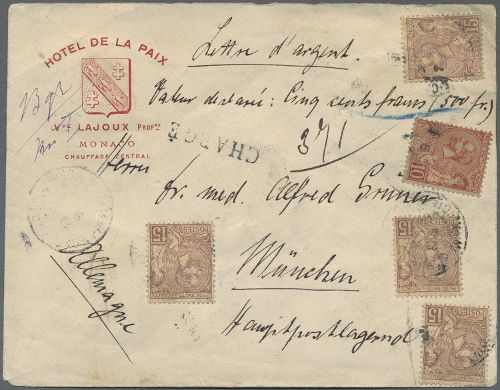 HOTEL DE LA PAIX
Vve LAJOUX PROPre
MONACO
CHAUFFAGE CENTRAL
Lettre d'argent.
Valeur déclaré: Cinq cents francs (500 fr.)
371
CHARGÉ
Herrn
Dr. med. Alfred Gruner
München
Hauptpostlagernd
Allemagne
15
10
15
15
15
POSTES